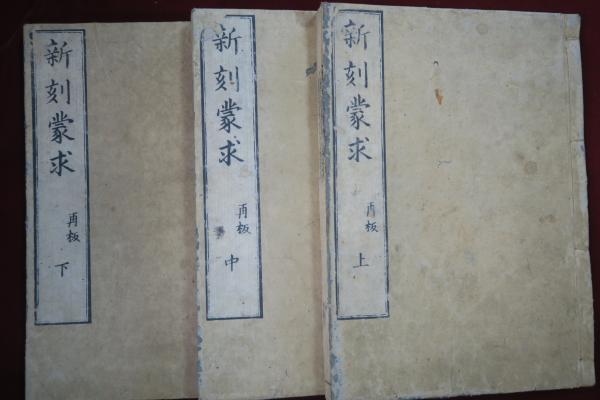 新刻蒙求
再板
上
新刻蒙求
再板
中
新刻蒙求
再板
下